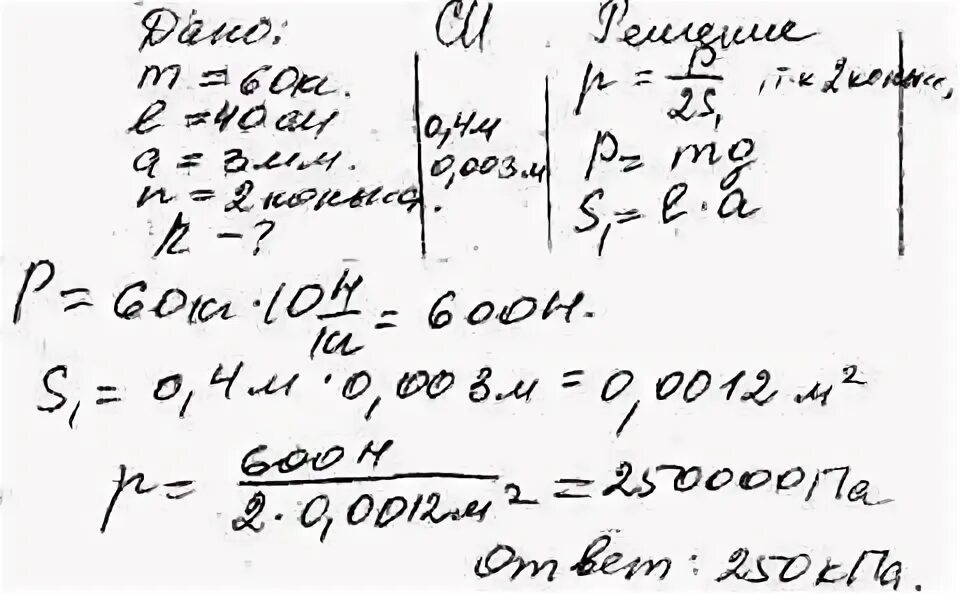 Дано:
m = 60кг.
ℓ = 40см
a = 3мм.
n = 2 конька.
p - ?
СИ
0,4м
0,003м
Решение
p = P/2S₁, т.к 2 конька,
P = mg
S₁ = ℓ · a
P = 60кг · 10 Н/кг = 600Н.
S₁ = 0,4м · 0,003м = 0,0012 м²
p = 600Н / 2 · 0,0012м² = 250000Па
Ответ: 250кПа.